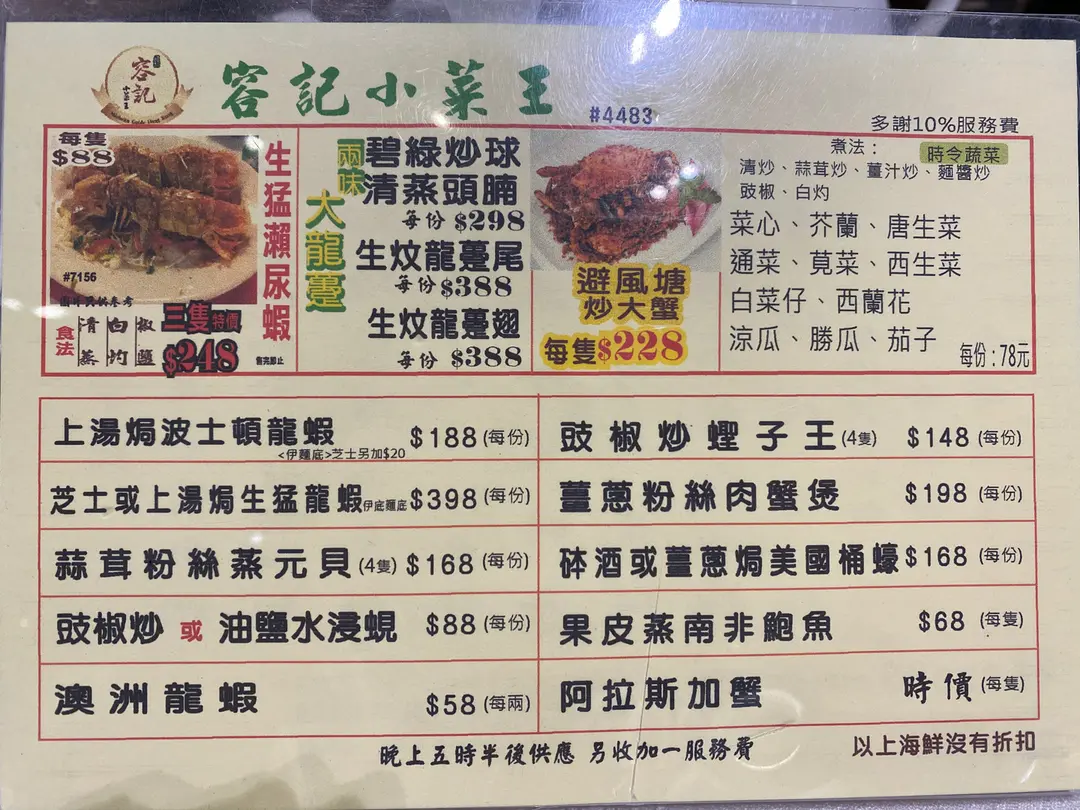 容記
小菜王
容記小菜王
#4483
多謝10%服務費
每隻
$88
生猛瀨尿蝦
#7156
食法
清蒸
白灼
椒鹽
三隻特價
$248
售完即止
兩味
大龍躉
碧綠炒球
清蒸頭腩
每份 $298
生炆龍躉尾
每份 $388
生炆龍躉翅
每份 $388
避風塘
炒大蟹
每隻$228
煮法：
時令蔬菜
清炒、蒜茸炒、薑汁炒、麵醬炒
豉椒、白灼
菜心、芥蘭、唐生菜
通菜、莧菜、西生菜
白菜仔、西蘭花
涼瓜、勝瓜、茄子
每份：78元
上湯焗波士頓龍蝦 $188 (每份)
<伊麵底>芝士另加$20
芝士或上湯焗生猛龍蝦 伊底麵底 $398 (每份)
蒜茸粉絲蒸元貝 (4隻) $168 (每份)
豉椒炒 或 油鹽水浸蜆 $88 (每份)
澳洲龍蝦 $58 (每兩)
豉椒炒蟶子王 (4隻) $148 (每份)
薑蔥粉絲肉蟹煲 $198 (每份)
砵酒或薑蔥焗美國桶蠔 $168 (每份)
果皮蒸南非鮑魚 $68 (每隻)
阿拉斯加蟹 時價 (每隻)
晚上五時半後供應 另收加一服務費
以上海鮮沒有折扣